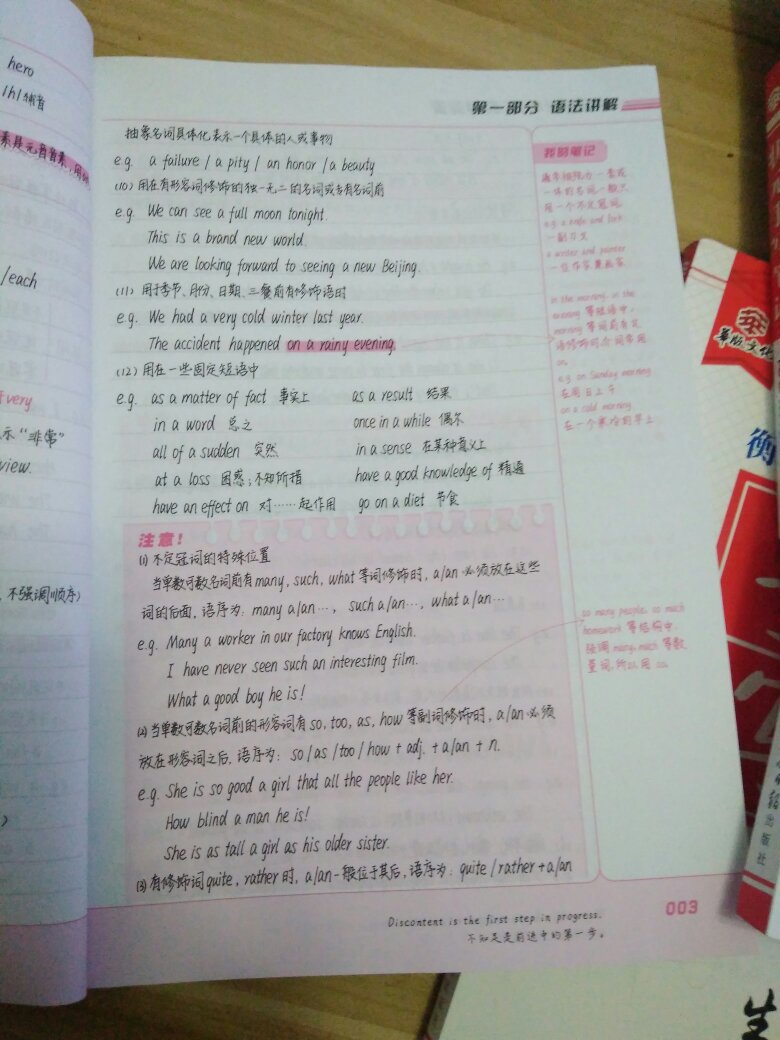 hero
/h/辅音
/each
very
示“非常”
view.
不强调顺序)
第一部分 语法讲解
抽象名词具体化表示一个具体的人或事物
e.g. a failure / a pity / an honor / a beauty
(10) 用在有形容词修饰的独一无二的名词或专有名词前
e.g. We can see a full moon tonight.
This is a brand new world.
We are looking forward to seeing a new Beijing.
(11) 用于季节、月份、日期、三餐前有修饰语时
e.g. We had a very cold winter last year.
The accident happened on a rainy evening.
(12) 用在一些固定短语中
e.g. as a matter of fact 事实上 as a result 结果
in a word 总之 once in a while 偶尔
all of a sudden 突然 in a sense 在某种意义上
at a loss 困惑;不知所措 have a good knowledge of 精通
have an effect on 对……起作用 go on a diet 节食
注意!
(1) 不定冠词的特殊位置
当单数可数名词前有many, such, what 等词修饰时, a/an 必须放在这些
词的后面, 语序为: many a/an…, such a/an…, what a/an…
e.g. Many a worker in our factory knows English.
I have never seen such an interesting film.
What a good boy he is!
(2) 当单数可数名词前的形容词有so, too, as, how 等副词修饰时, a/an 必须
放在形容词之后, 语序为: so / as / too / how + adj. + a/an + n.
e.g. She is so good a girl that all the people like her.
How blind a man he is!
She is as tall a girl as his older sister.
(3) 有修饰词quite, rather 时, a/an一般位于其后, 语序为: quite / rather + a/an
我的笔记
通常被视为一套或
一体的名词一般只
用一个不定冠词
e.g. a knife and fork
一副刀叉
a writer and painter
一位作家兼画家
in the morning, in the
evening 等短语中,
morning 等词前有其
他修饰时介词常用
on.
e.g. on Sunday morning
在周日上午
on a cold morning
在一个寒冷的早上
so many people, so much
homework 等结构中,
强调 many, much 等数
量词, 所以用 so.
Discontent is the first step in progress.
不知足是前进中的第一步。
003
华版文化
衡
出版社
生